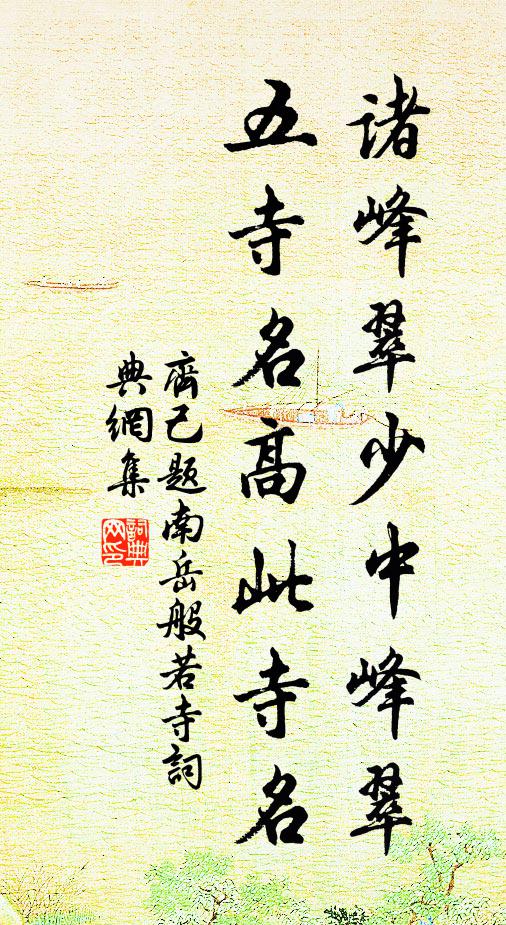 諸峰翠少中峰翠
五寺名高此寺名
齊己題南岳般若寺詞
典網集
詞典网印